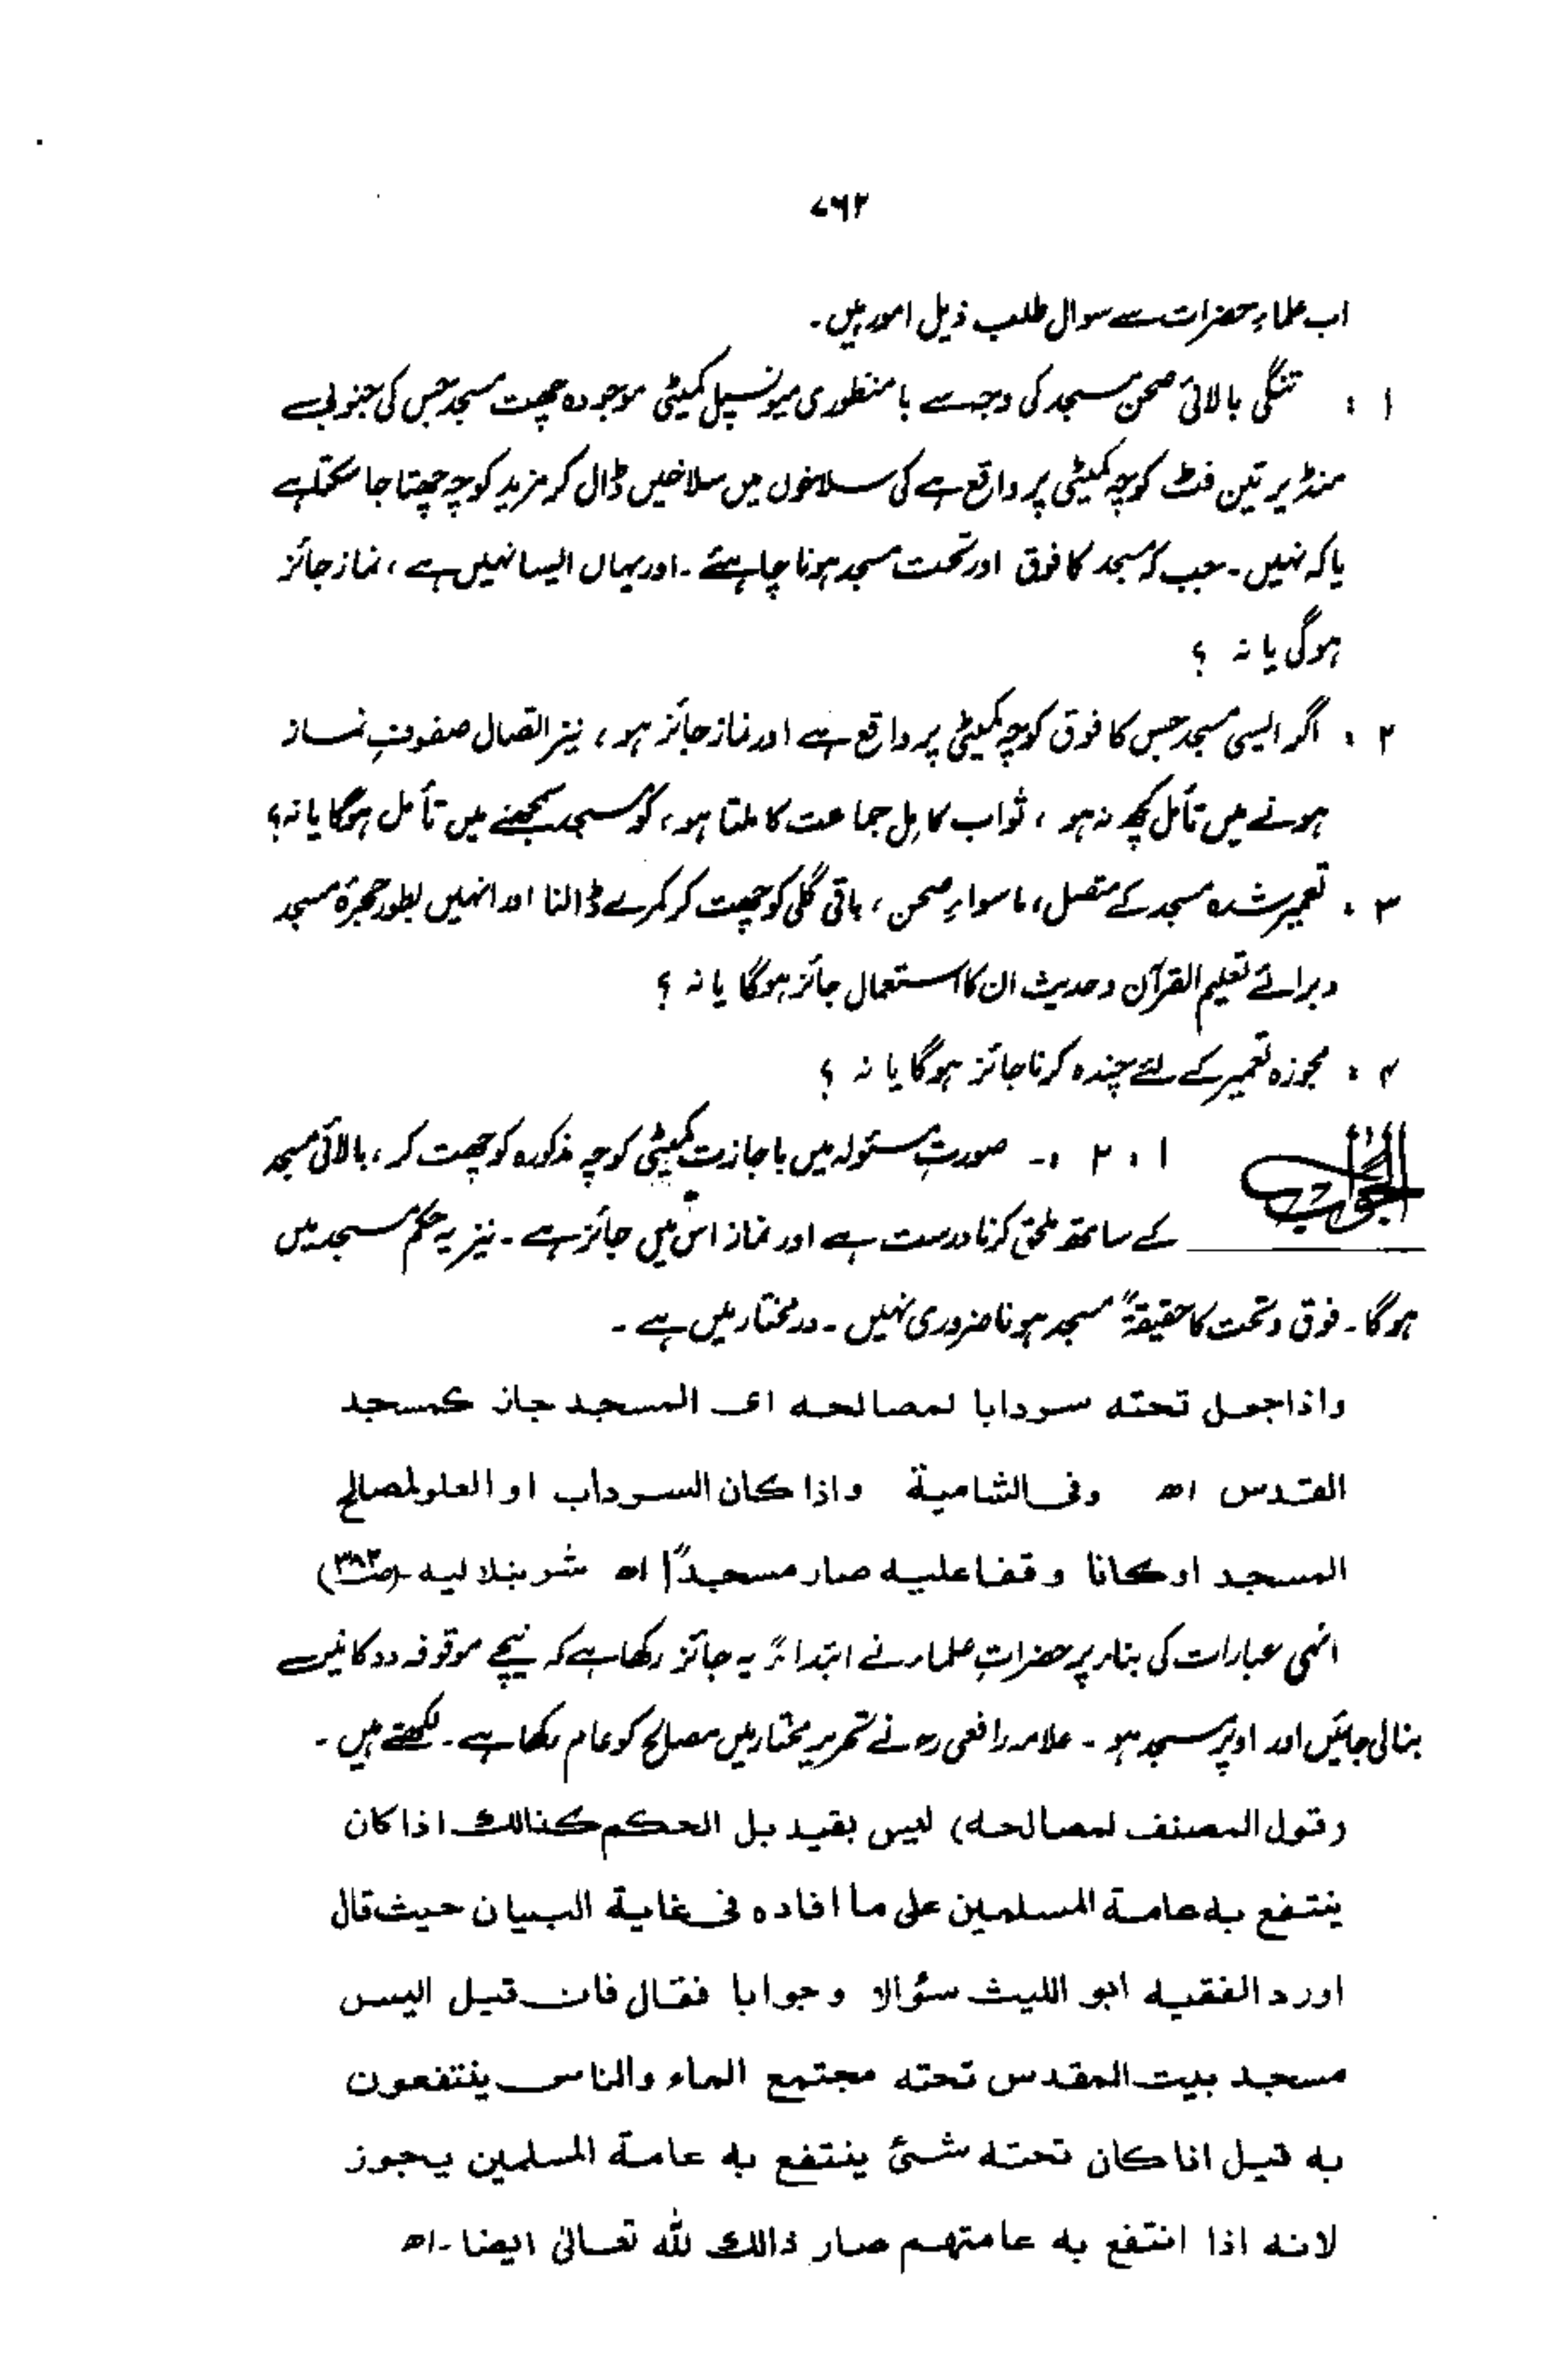 ۷۶۲
اب علماءِ حضرات سے سوال طلب ذیل امور ہیں۔
۱ : تنگی بالائی صحن مسجد کی وجہ سے با منظوری میونسپل کمیٹی موجودہ چھت مسجد جس کی جنوبی
منڈیر تین فٹ کوچہ کمیٹی پر واقع ہے کی سلاخوں میں سلاخیں ڈال کر مزید کوچہ چھتا جا سکتا ہے
یا کہ نہیں۔ جب کہ مسجد کا فوق اور تحت مسجد ہونا چاہئے۔ اور یہاں ایسا نہیں ہے، نماز جائز
ہوگی یا نہ ؟
۲ : اگر ایسی مسجد جس کا فوق کوچہ کمیٹی پر واقع ہے اور نماز جائز ہو، نیز اتصال صفوفِ نماز
ہونے میں تأمل کچھ نہ ہو، ثواب کامل جماعت کا ملتا ہو، کو مسجد سمجھنے میں تأمل ہوگا یا نہ؟
۳ : تعمیر شدہ مسجد کے متصل، ماسواءِ صحن، باقی گلی کو چھت کر کمرے ڈالنا اور انہیں بطور حجرۂ مسجد
و برائے تعلیم القرآن وحدیث ان کا استعمال جائز ہوگا یا نہ ؟
۴ : مجوزہ تعمیر کے لئے چندہ کرنا جائز ہوگا یا نہ ؟
الجواب ۱ ، ۲ :- صورتِ مسئولہ میں باجازت کمیٹی کوچہ مذکورہ کو چھت کر، بالائی مسجد
کے ساتھ ملحق کرنا درست ہے اور نماز اس میں جائز ہے۔ نیز یہ حکم مسجد میں
ہوگا۔ فوق و تحت کا حقیقۃً مسجد ہونا ضروری نہیں۔ درمختار میں ہے۔
واذا جعل تحته سردابا لمصالحه ای المسجد جاز كمسجد
القدس اھ وفی الشامیة واذا كان السرداب او العلو لمصالح
المسجد او كانا وقفا علیه صار مسجدًا اھ شرنبلالیه (ص۳۸۲)
انہی عبارات کی بناء پر حضراتِ علماء نے ابتداءً یہ جائز رکھا ہے کہ نیچے موقوفہ دوکانیں
بنالی جائیں اور اوپر مسجد ہو۔ علامہ رافعی رہ نے تحریر مختار میں مصالح کو عام رکھا ہے۔ لکھتے ہیں۔
(قول المصنف لمصالحه) لیس بقید بل الحکم کذالك اذا كان
ینتفع به عامة المسلمین علی ما افاده فی غایة البیان حیث قال
اورد الفقیه ابو اللیث سؤالا وجوابا فقال فان قیل الیس
مسجد بیت المقدس تحته مجتمع الماء والناس ینتفعون
به قیل اذا كان تحته شئ ینتفع به عامة المسلمین یجوز
لانه اذا انتفع به عامتهم صار ذالك لله تعالی ایضا۔ اھ